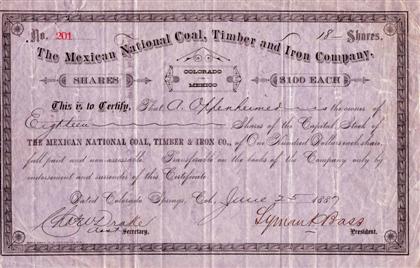 No. 201 18 Shares.
The Mexican National Coal, Timber and Iron Company.
SHARES COLORADO AND MEXICO $100 EACH
This is to Certify, That A. Oppenheimer is the owner of
Eighteen Shares of the Capital Stock of
THE MEXICAN NATIONAL COAL, TIMBER & IRON CO., of One Hundred Dollars each share,
full paid and non-assessable. Transferable on the books of the Company only by
endorsement and surrender of this Certificate.
Dated Colorado Springs, Col. June 25 1887
Chas W Drake Lyman K Bass
Asst Secretary. President.